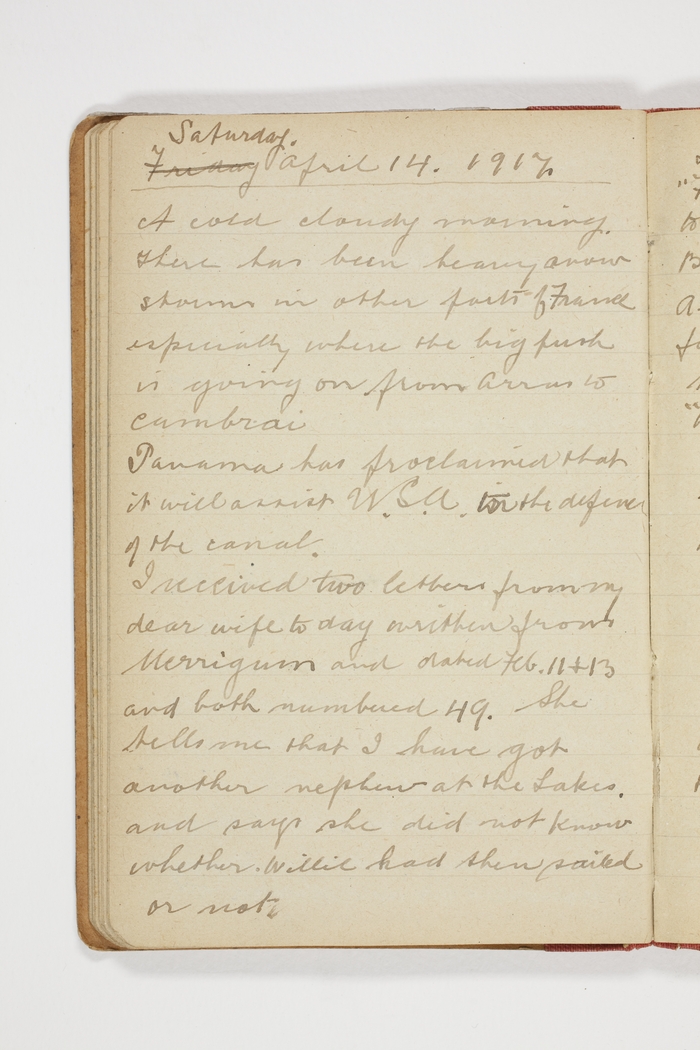 Saturday.
Friday April 14. 1917.
A cold cloudy morning.
there has been heavy snow
storms in other parts of France
especially where the big push
is going on from Arras to
cambrai
Panama has proclaimed that
it will assist U.S.A. in the defence
of the canal.
I received two letters from my
dear wife to day written from
Merrigum and dated Feb. 11 + 13
and both numbered 49. She
tells me that I have got
another nephew at the Lakes.
and says she did not know
whether Willie had then sailed
or not.